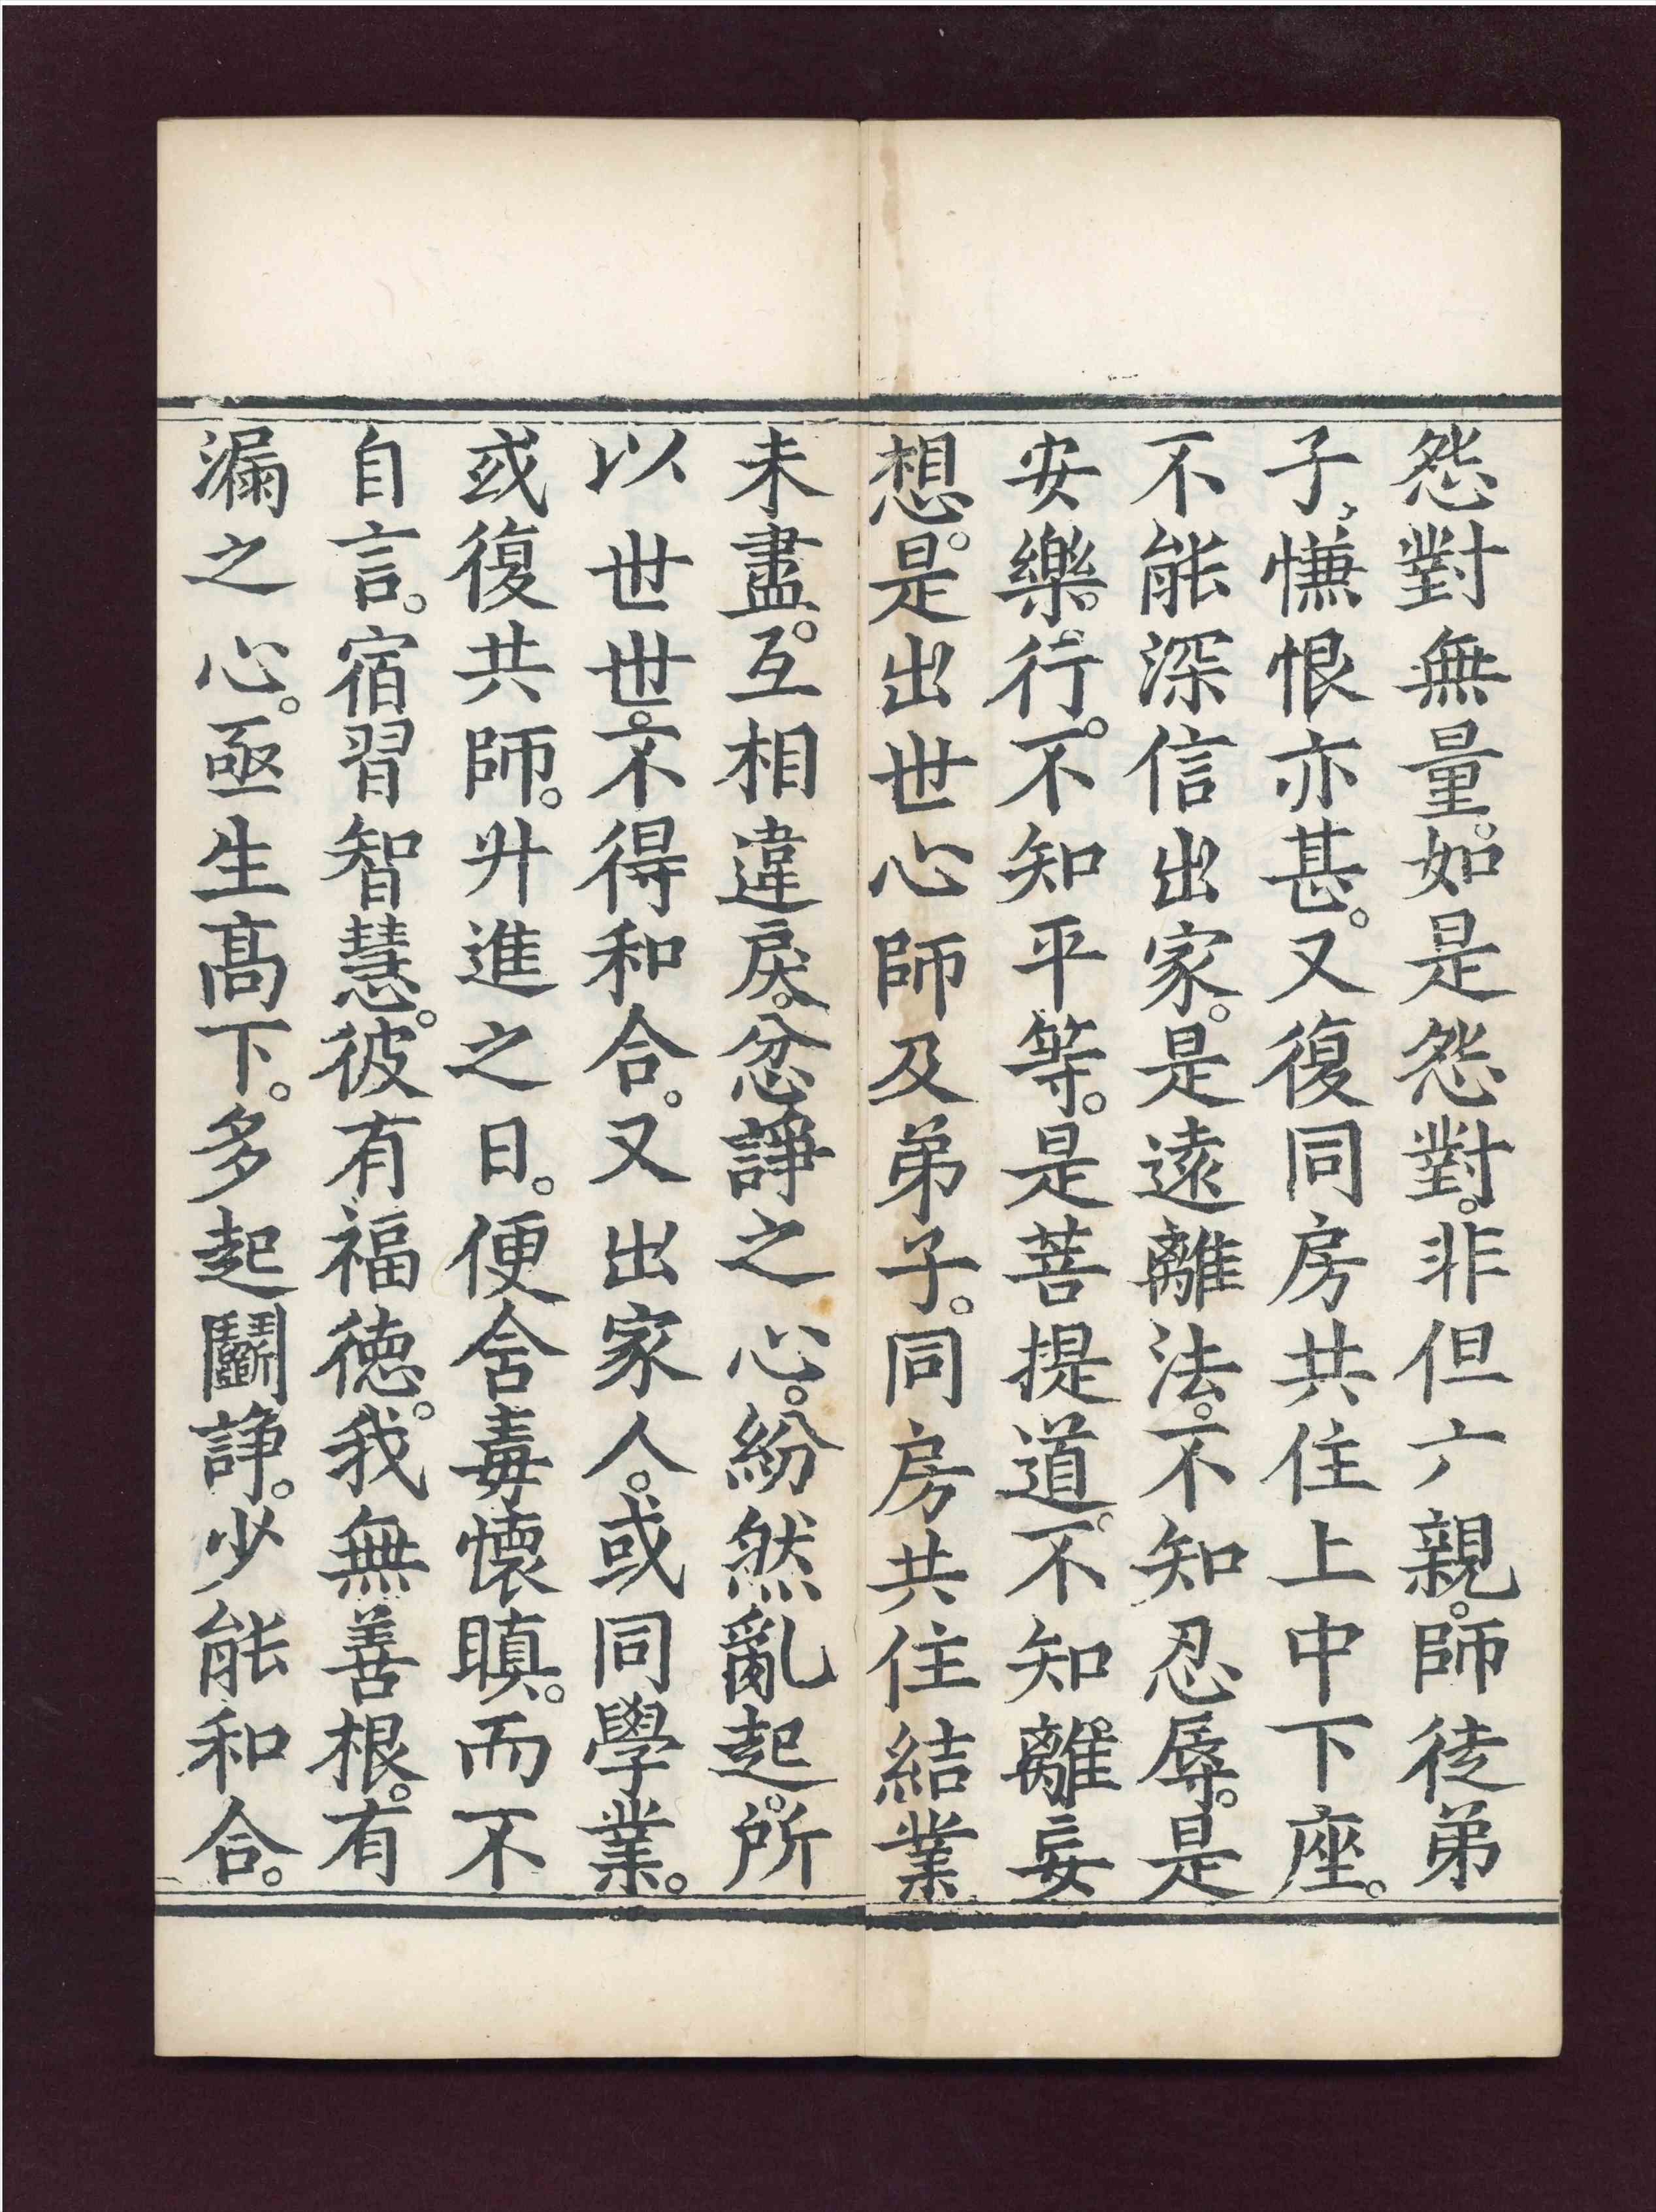 怨對無量。如是怨對。非但六親。師徒弟
子、慊恨亦甚。又復同房共住上中下座。
不能深信出家。是遠離法。不知忍辱。是
安樂行。不知平等。是菩提道。不知離妄
想。是出世心師及弟子。同房共住結業
未盡。互相違戾。忿諍之心。紛然亂起。所
以世世。不得和合。又出家人。或同學業。
或復共師。升進之日。便舍毒懷瞋。而不
自言。宿習智慧。彼有福德。我無善根。有
漏之心。亟生高下。多起鬭諍。少能和合。